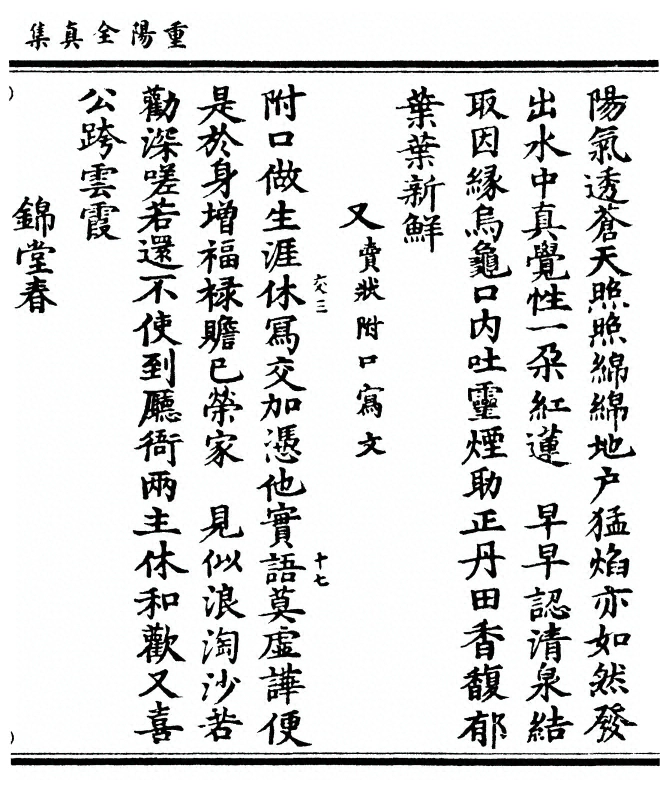 重陽全真集
陽氣透蒼天照照綿綿地户猛焰亦如然發
出水中真覺性一朶紅蓮　早早認清泉結
取因緣烏龜口内吐靈煙助正丹田香馥郁
葉葉新鮮
又賣狀附口寫文
附口做生涯休寫交加憑他實語莫虛譁便
是於身增福禄贍已榮家　見似浪淘沙若
勸深嗟若還不使到廳衙兩主休和歡又喜
公跨雲霞
錦堂春
交三
十七